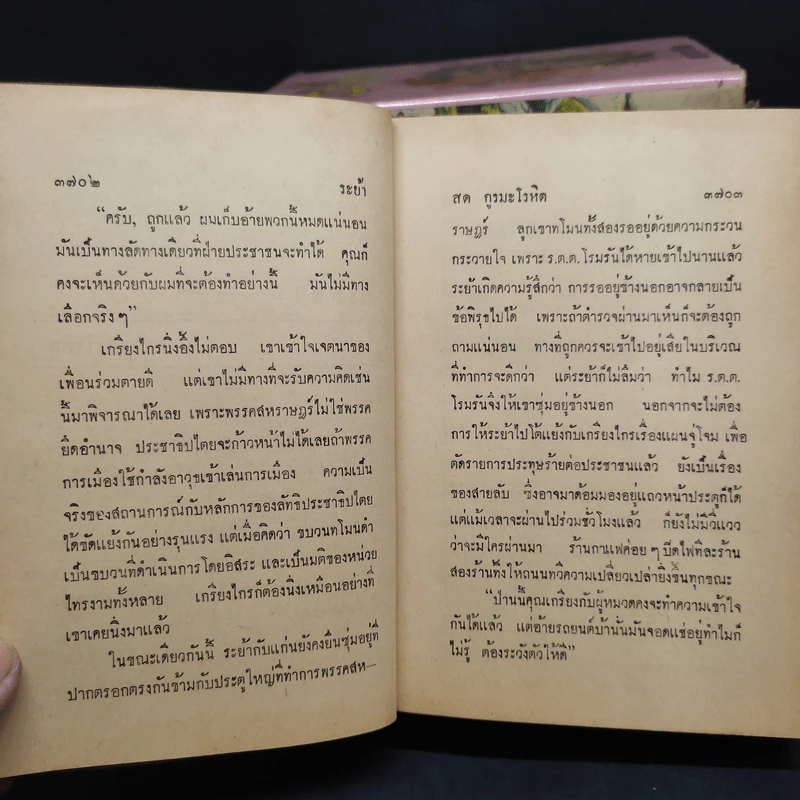 ๓๗๐๒
ระย้า
"ครับ, ถูกแล้ว ผมเก็บอ้ายพวกนี้หมดแน่นอน
มันเป็นทางลัดทางเดียวที่ฝ่ายประชาชนจะทำได้ คุณก็
คงจะเห็นด้วยกับผมที่จะต้องทำอย่างนี้ มันไม่มีทาง
เลือกจริง ๆ"
เกรียงไกรนิ่งอึ้งไม่ตอบ เขาเข้าใจเจตนาของ
เพื่อนร่วมตายดี แต่เขาไม่มีทางที่จะรับความคิดเช่น
นี้มาพิจารณาได้เลย เพราะพรรคสหราษฎร์ไม่ใช่พรรค
ยึดอำนาจ ประชาธิปไตยจะก้าวหน้าไม่ได้เลยถ้าพรรค
การเมืองใช้กำลังอาวุธเข้าเล่นการเมือง ความเป็น
จริงของสถานการณ์กับหลักการของลัทธิประชาธิปไตย
ได้ขัดแย้งกันอย่างรุนแรง แต่เมื่อคิดว่า ขบวนทโมนดำ
เป็นขบวนที่ดำเนินการโดยอิสระ และเป็นมติของหน่วย
ไทรงามทั้งหลาย เกรียงไกรก็ต้องนิ่งเหมือนอย่างที่
เขาเคยนิ่งมาแล้ว
ในขณะเดียวกันนี้ ระย้ากับแก่นยังคงยืนซุ่มอยู่ที่
ปากตรอกตรงกันข้ามกับประตูใหญ่ที่ทำการพรรคสห—
สด กูรมะโรหิต
๓๗๐๓
ราษฎร์ ลูกเขาทโมนทั้งสองรออยู่ด้วยความกระวน
กระวายใจ เพราะ ร.ต.ต. โรมรันได้หายเข้าไปนานแล้ว
ระย้าเกิดความรู้สึกว่า การรออยู่ข้างนอกอาจกลายเป็น
ข้อพิรุธไปได้ เพราะถ้าตำรวจผ่านมาเห็นก็จะต้องถูก
ถามแน่นอน ทางที่ถูกควรจะเข้าไปอยู่เสียในบริเวณ
ที่ทำการจะดีกว่า แต่ระย้าก็ไม่ลืมว่า ทำไม ร.ต.ต.
โรมรันจึงให้เขาซุ่มอยู่ข้างนอก นอกจากจะไม่ต้อง
การให้ระย้าไปโต้แย้งกับเกรียงไกรเรื่องแผนจู่โจม เพื่อ
ตัดรายการประทุษร้ายต่อประชาชนแล้ว ยังเป็นเรื่อง
ของสายลับ ซึ่งอาจมาด้อมมองอยู่แถวหน้าประตูก็ได้
แต่แม้เวลาจะผ่านไปร่วมชั่วโมงแล้ว ก็ยังไม่มีวี่แวว
ว่าจะมีใครผ่านมา ร้านกาแฟค่อย ๆ ปิดไฟทีละร้าน
สองร้านทิ้งให้ถนนทวีความเปลี่ยวเปล่ายิ่งขึ้นทุกขณะ
"ป่านนี้คุณเกรียงกับผู้หมวดคงจะทำความเข้าใจ
กันได้แล้ว แต่อ้ายรถยนต์บ้านั่นมันจอดแช่อยู่ทำไมก็
ไม่รู้ ต้องระวังตัวให้ดี"